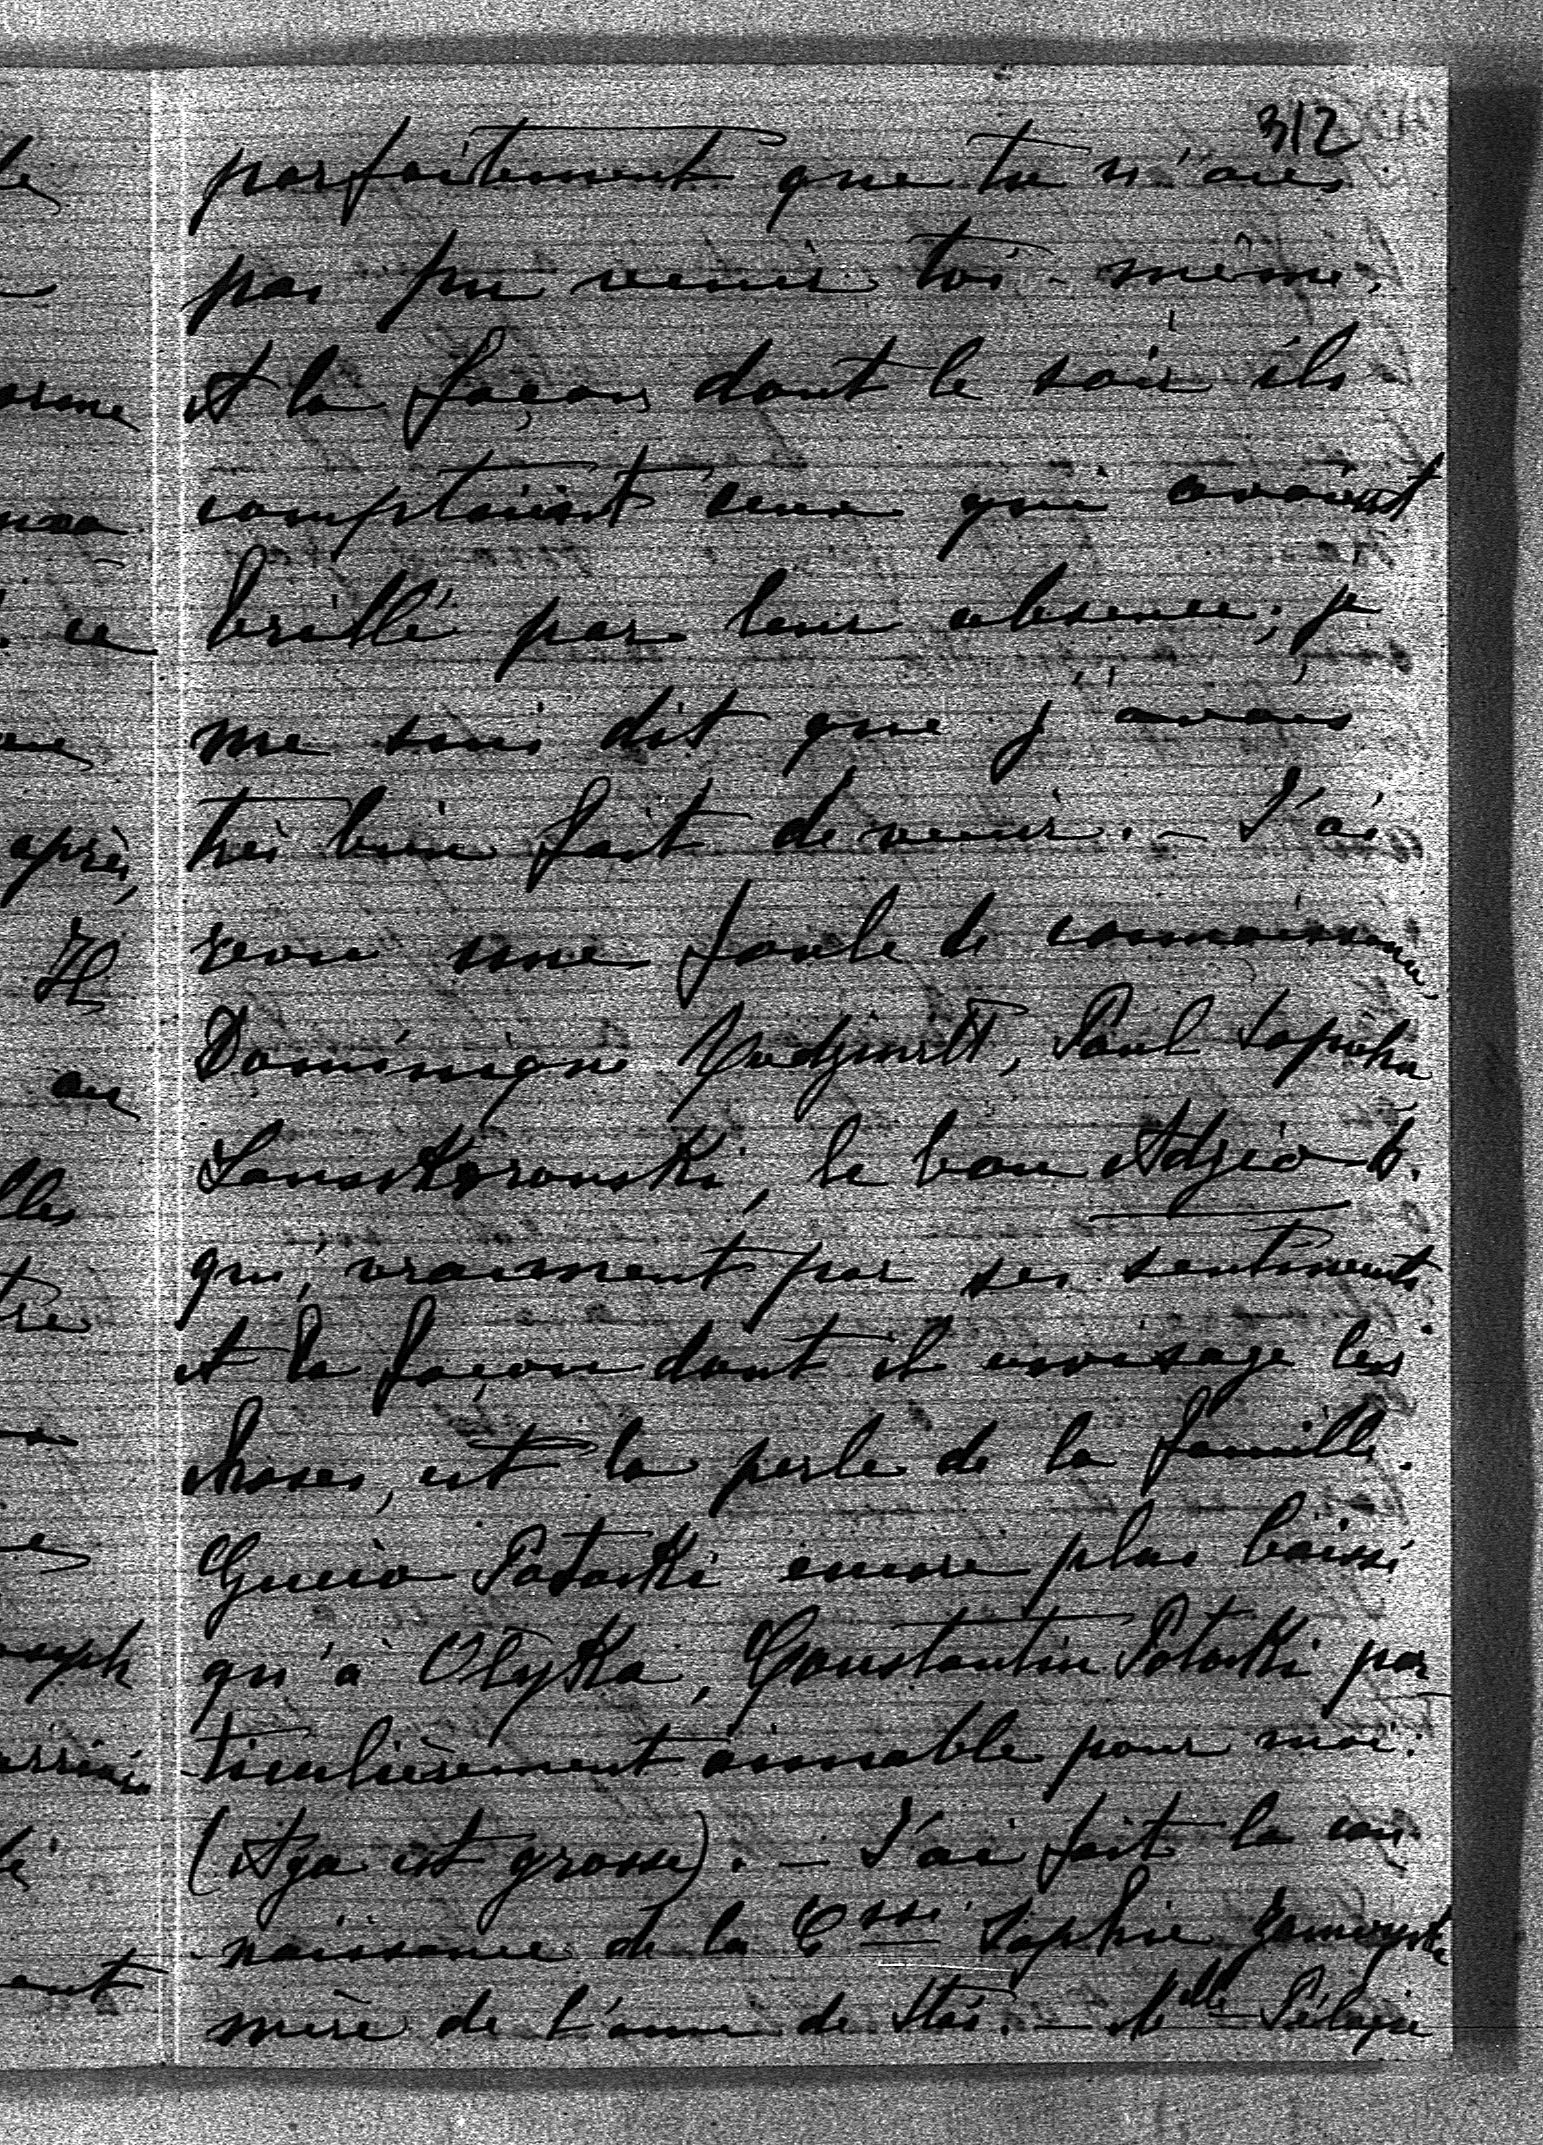 312
parfaitement que tu n'aies
pas pu venir toi-même,
et la façon dont le soir ils
comptaient ceux qui avaient
brillé par leur absence; je
me suis dit que j'avais
très bien fait de venir. – J'ai
revu une foule de connaissances,
Dominique Paul Sapieha
le bon Adzio B.
qui, vraiment par ses sentiments
et la façon dont il envisage les
choses, est la perle de la famille.
Gucio Potocki encore plus baissé
qu'à Olyka, Constantin Potocki par
ticulièrement aimable pour moi.
(Aga est grosse). – J'ai fait la con
naissance de la Csse Sophie Zamoyska
mère de l'amie de Staś. – Melle Pélagie